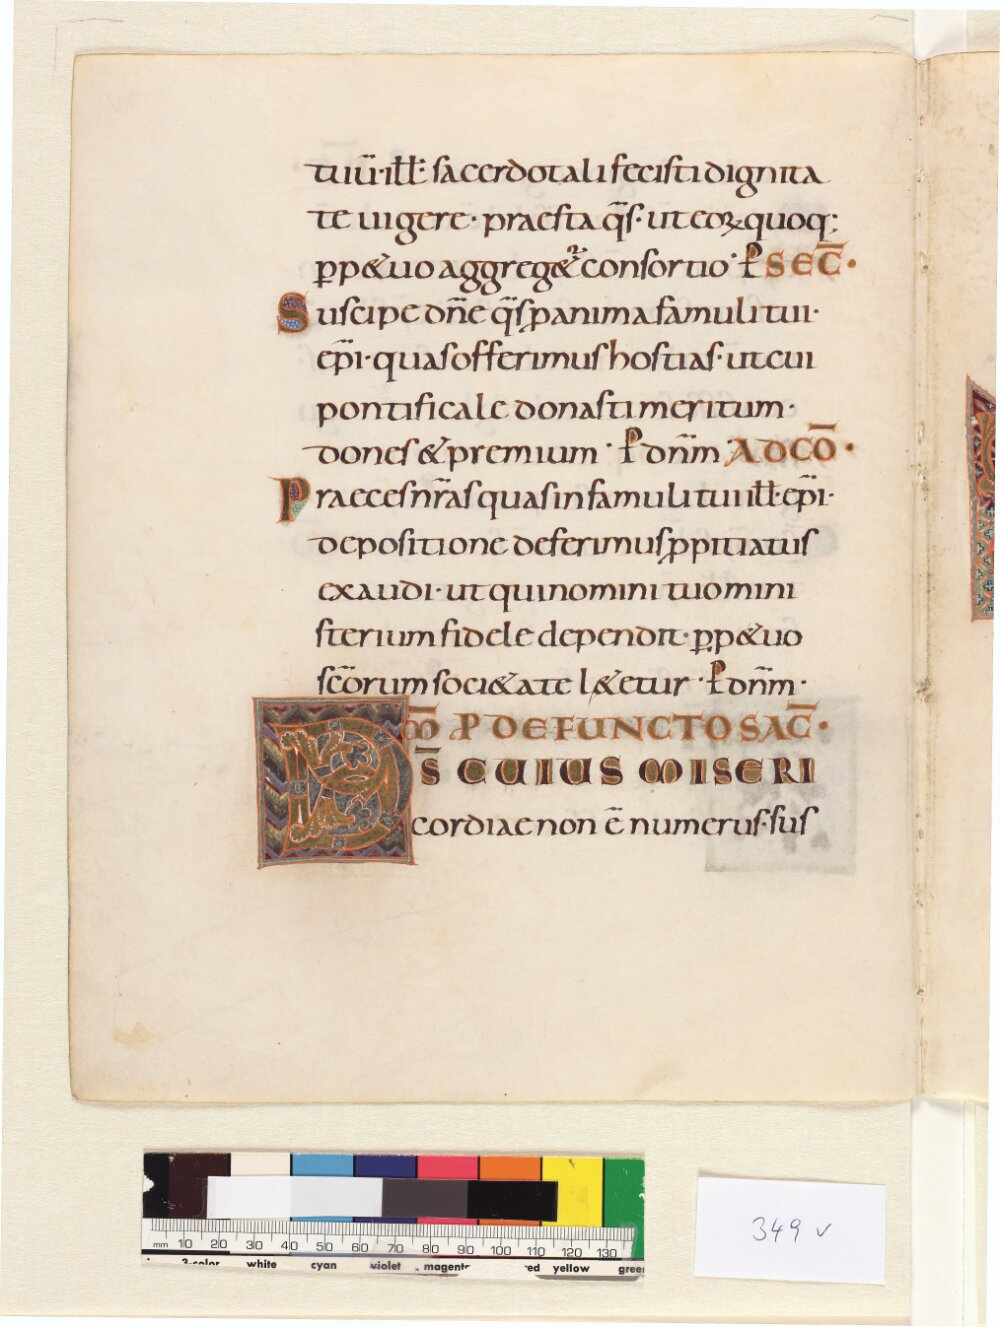 tuū·ill̄· sacerdotali fecisti dignita
te uigere· praesta q̄s· ut eoꝝ quoq;
ꝑp&uo aggreg&ᷣ consortio· P̄ SEC̄·
Suscipe dn̄e q̄s ꝓ anima famuli tui·
ep̄i· quas offerimus hostias· ut cui
pontificale donasti meritum·
dones & premium· P̄ dn̄m AD CŌ·
Praeces nr̄as quas in famuli tui ill̄· ep̄i·
depositione deferimus ꝓpitiatus
exaudi· ut qui nomini tuo mini
sterium fidele dependit· ꝑp&uo
sc̄orum soci&ate l&etur· P̄ dn̄m·
M̄ P DEFUNCTO SAC̄·
DS̄ CUIUS MISERI
cordiae non ē numerus· sus
349 v
mm 10 20 30 40 50 60 70 80 90 100 110 120 130
3-color white cyan violet magenta red yellow green